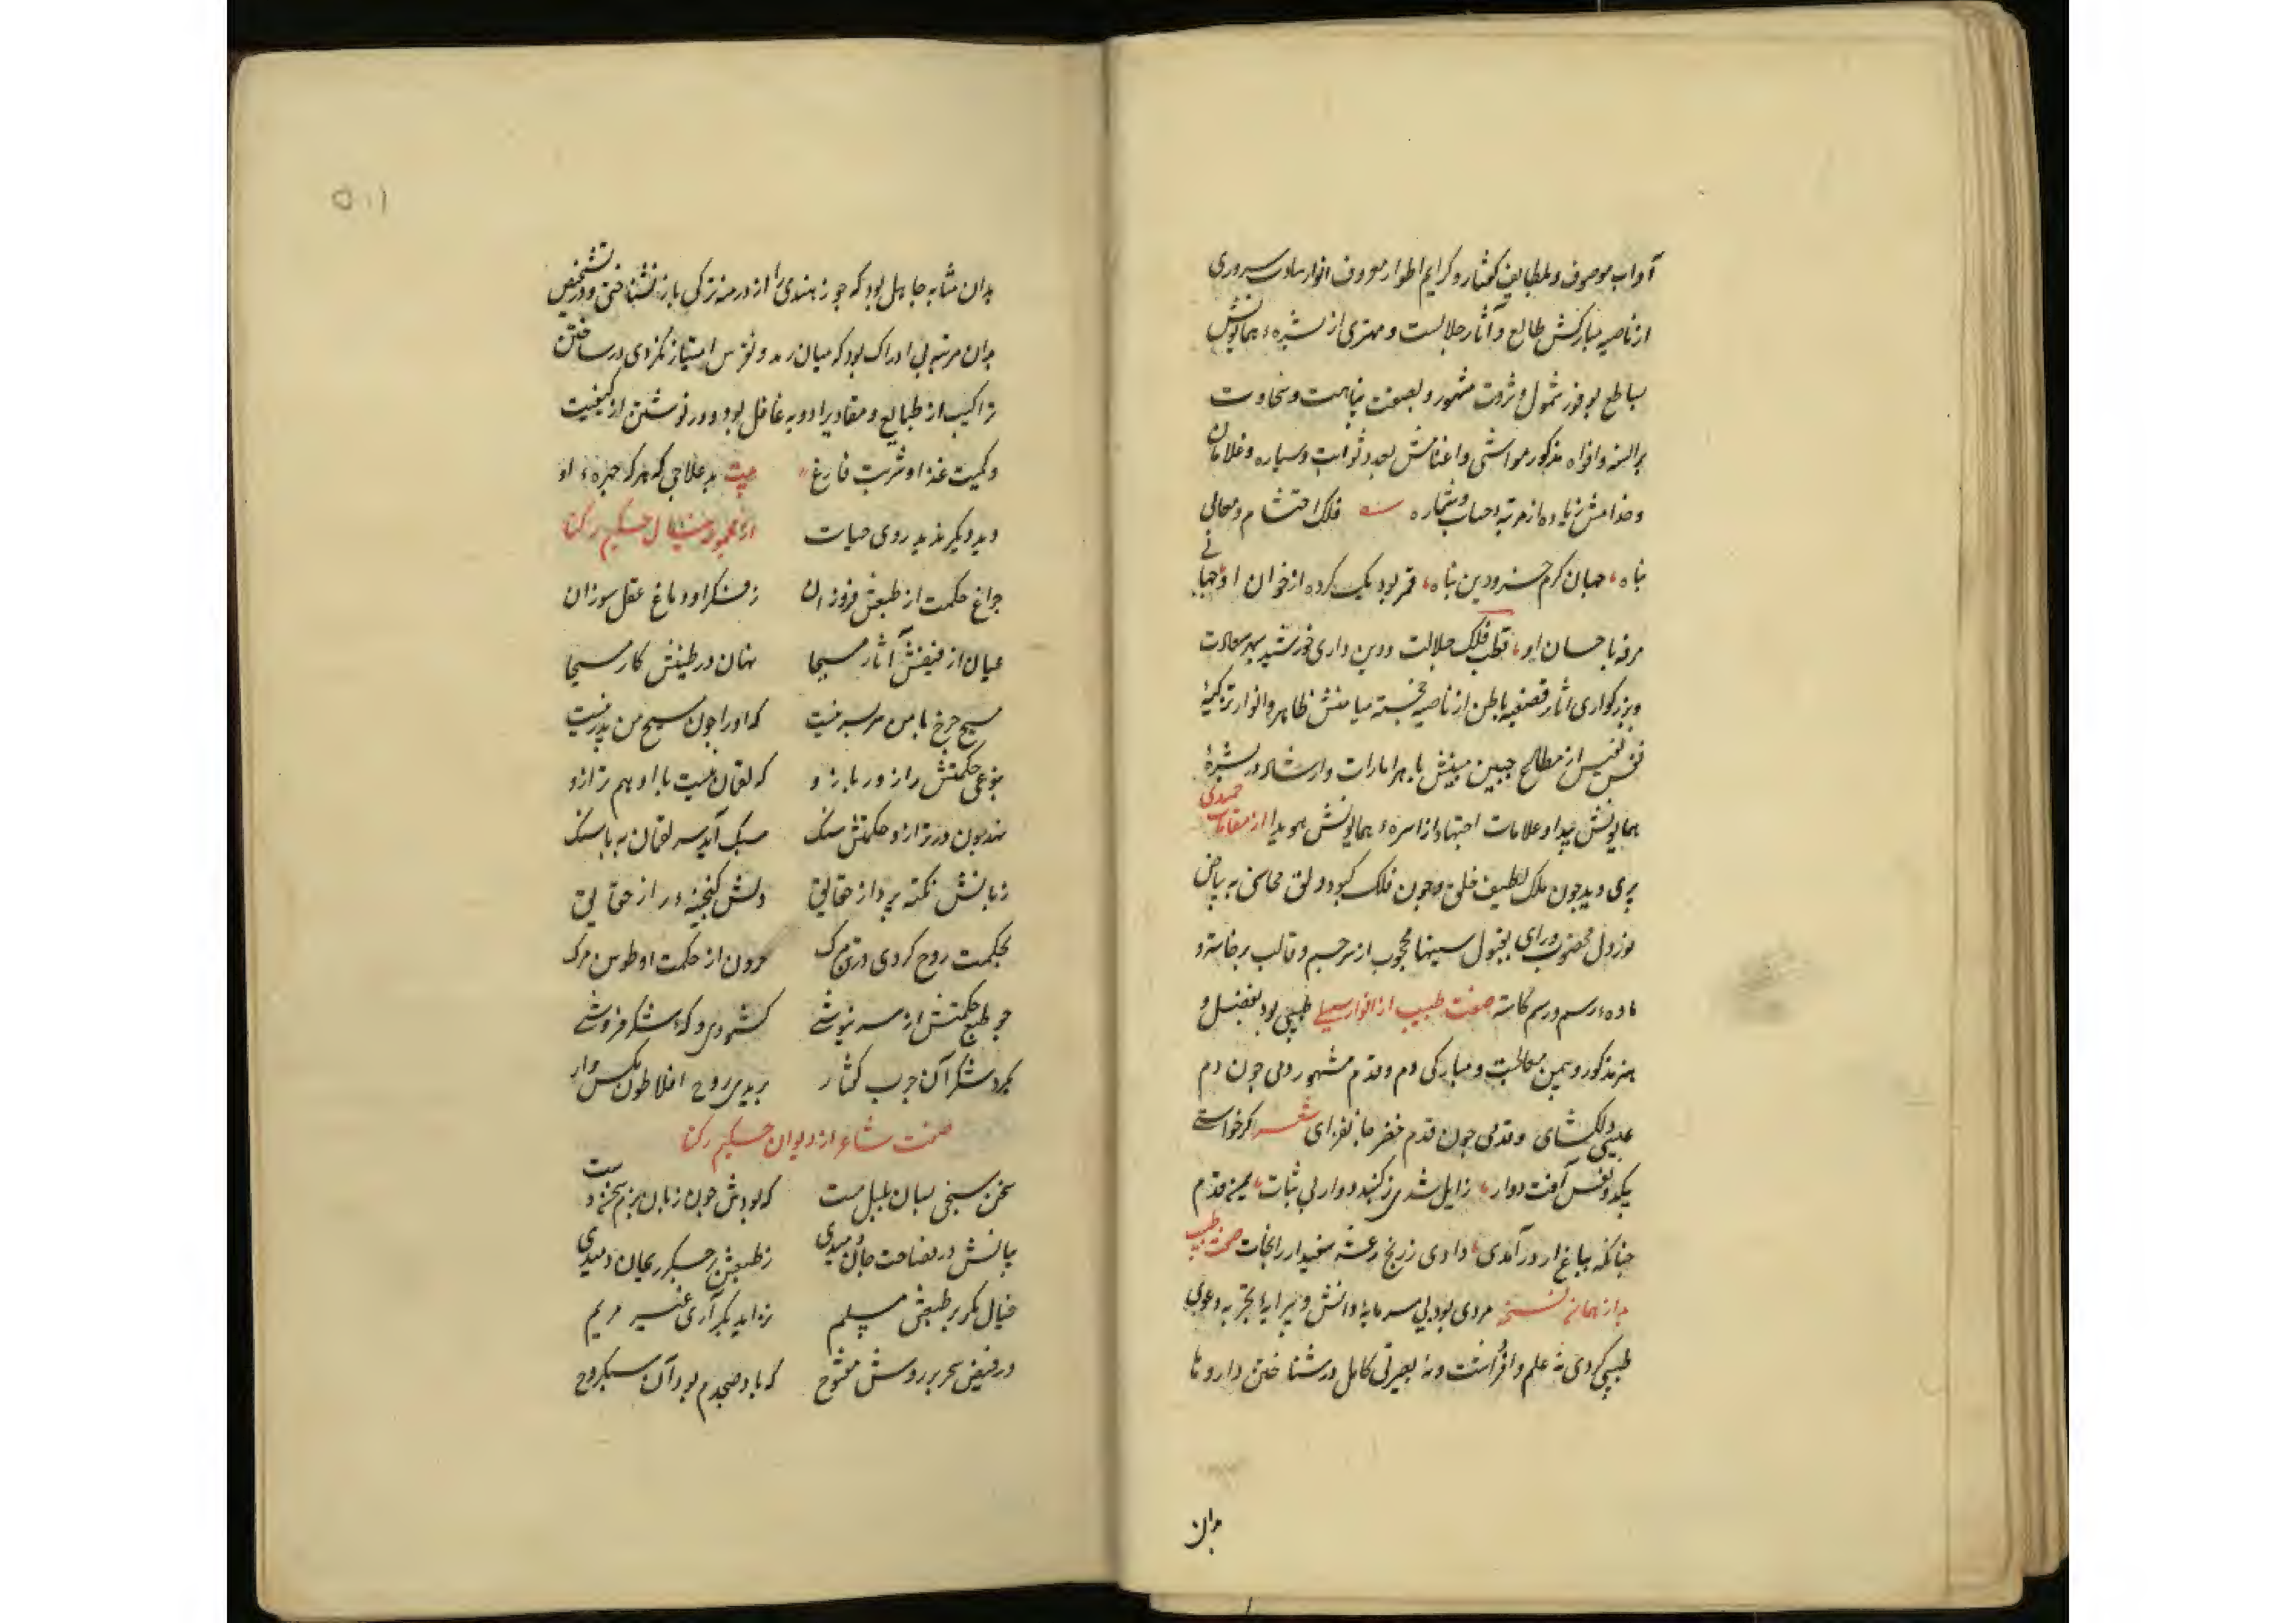 آداب موصوف و بلطایف کفتار و کرایم اطوار معروف انوار سروری
از ناصیه مبارکش طالع و آثار جلالت و مهتری از بشرهٔ همایونش
ساطع بوفور تمول و ثروت مشهور و بصفت نباهت و سخاوت
بر السنه و افواه مذکور مواشی و اغنامش بعدد ثوابت و سیاره و غلامان
و خدامش زیاده از مرتبهٔ حساب و شماره فلک احتشام و معالی
پناه جهان کرم خسرو دین پناه قمر بود یک کرده از خوان او جهانی
مرفه باحسان او قطب فلک جلالت و دین داری خورشید سپهر سعادت
و بزرکواری آثار تصفیه باطن از ناصیه خجسته میامنش ظاهر و انوار تزکیهٔ
نفس نفیس از مطالع جبین مبینش باهر امارات وارشاد در بشرهٔ
همایونش پیدا و علامات اجتهاد از اسرهٔ همایونش هویدا از مقامات حمیدی
پری دید چون ملک لطیف خلق و چون فلک کبود دلق محاسنی به بیاض
نور دل مخضوب و رای بقبول سینها محجوب از سر جسم و قالب برخاسته و
ماده رسم و رسم کاسته صفت طبیب از انوار سهیلی طبیبی بود بفضل و
هنر مذکور و بیمن معالجت و مبارکی دم و قدم مشهور دمی چون دم
عیسی دلکشای و قدمی چون قدم خضر جانفزای شعر اکر خواستی
یکدو نفس آفت دوار زایل شدی ز کنبد دوار بی ثبات قدم
چنانکه بباغ ار درآمدی دادی ز رنج رعشه سفیدار را نجات صفت طبیب
هم از همان نسخه مردی بود بی سرمایهٔ دانش و پیرایهٔ تجربه دعوی
طبیبی کردی نه علم وافر داشت و نه بصیرتی کامل در شناختن داروها
بدان
بدان مثابه جاهل بود که جوز هندی را از درمنهٔ ترکی باز نشناختی و در تشخیص
بدان مرتبه بی ادراک بود که میان رمد و نقرس امتیاز نکردی در ساختن
تراکیب از طبایع و مقادیر ادویه غافل بود و در نوشتن از کیفیت
و کمیت غذا و شربت فارغ بیت بد علاجی که هر که چهرهٔ او
دید دیکر ندید روی حیات از حکیم رکنا
چراغ حکمت از طبعش فروزان ز فکر او دماغ عقل سوزان
عیان از فیضش آثار مسیحا نهان در طینتش کار مسیحا
مسیح چرخ با من سربسر نیست که او را چون مسیح من پدر نیست
بنوعی حکمتش را زور بازو که لقمان نیست با او هم ترازو
نهد چون در ترازو حکمتش سنک سبک آید سر لقمان به پاسنک
زبانش نکته پرداز حقایق دلش کنجینهٔ راز حقایق
بحکمت روح کردی در تن مرک
چو طبع حکمتش از سر نیوشی کشودی شکر فروشی
بکرد شکر آن چرب کفتار پریدی روح افلاطون مکس وار
صفت شاعر از دیوان حکیم رکنا
سخن سنجی بسان بلبل مست که بودش چون زبان
بیانش در فصاحت جان دمیدی ز طبعش ریحان دمیدی
خیال بکر بر طبعش مسلم نزاید بکر آری غیر مریم
در فیض سحر بر روش مفتوح که باد صبحدم بود آن سبکروح